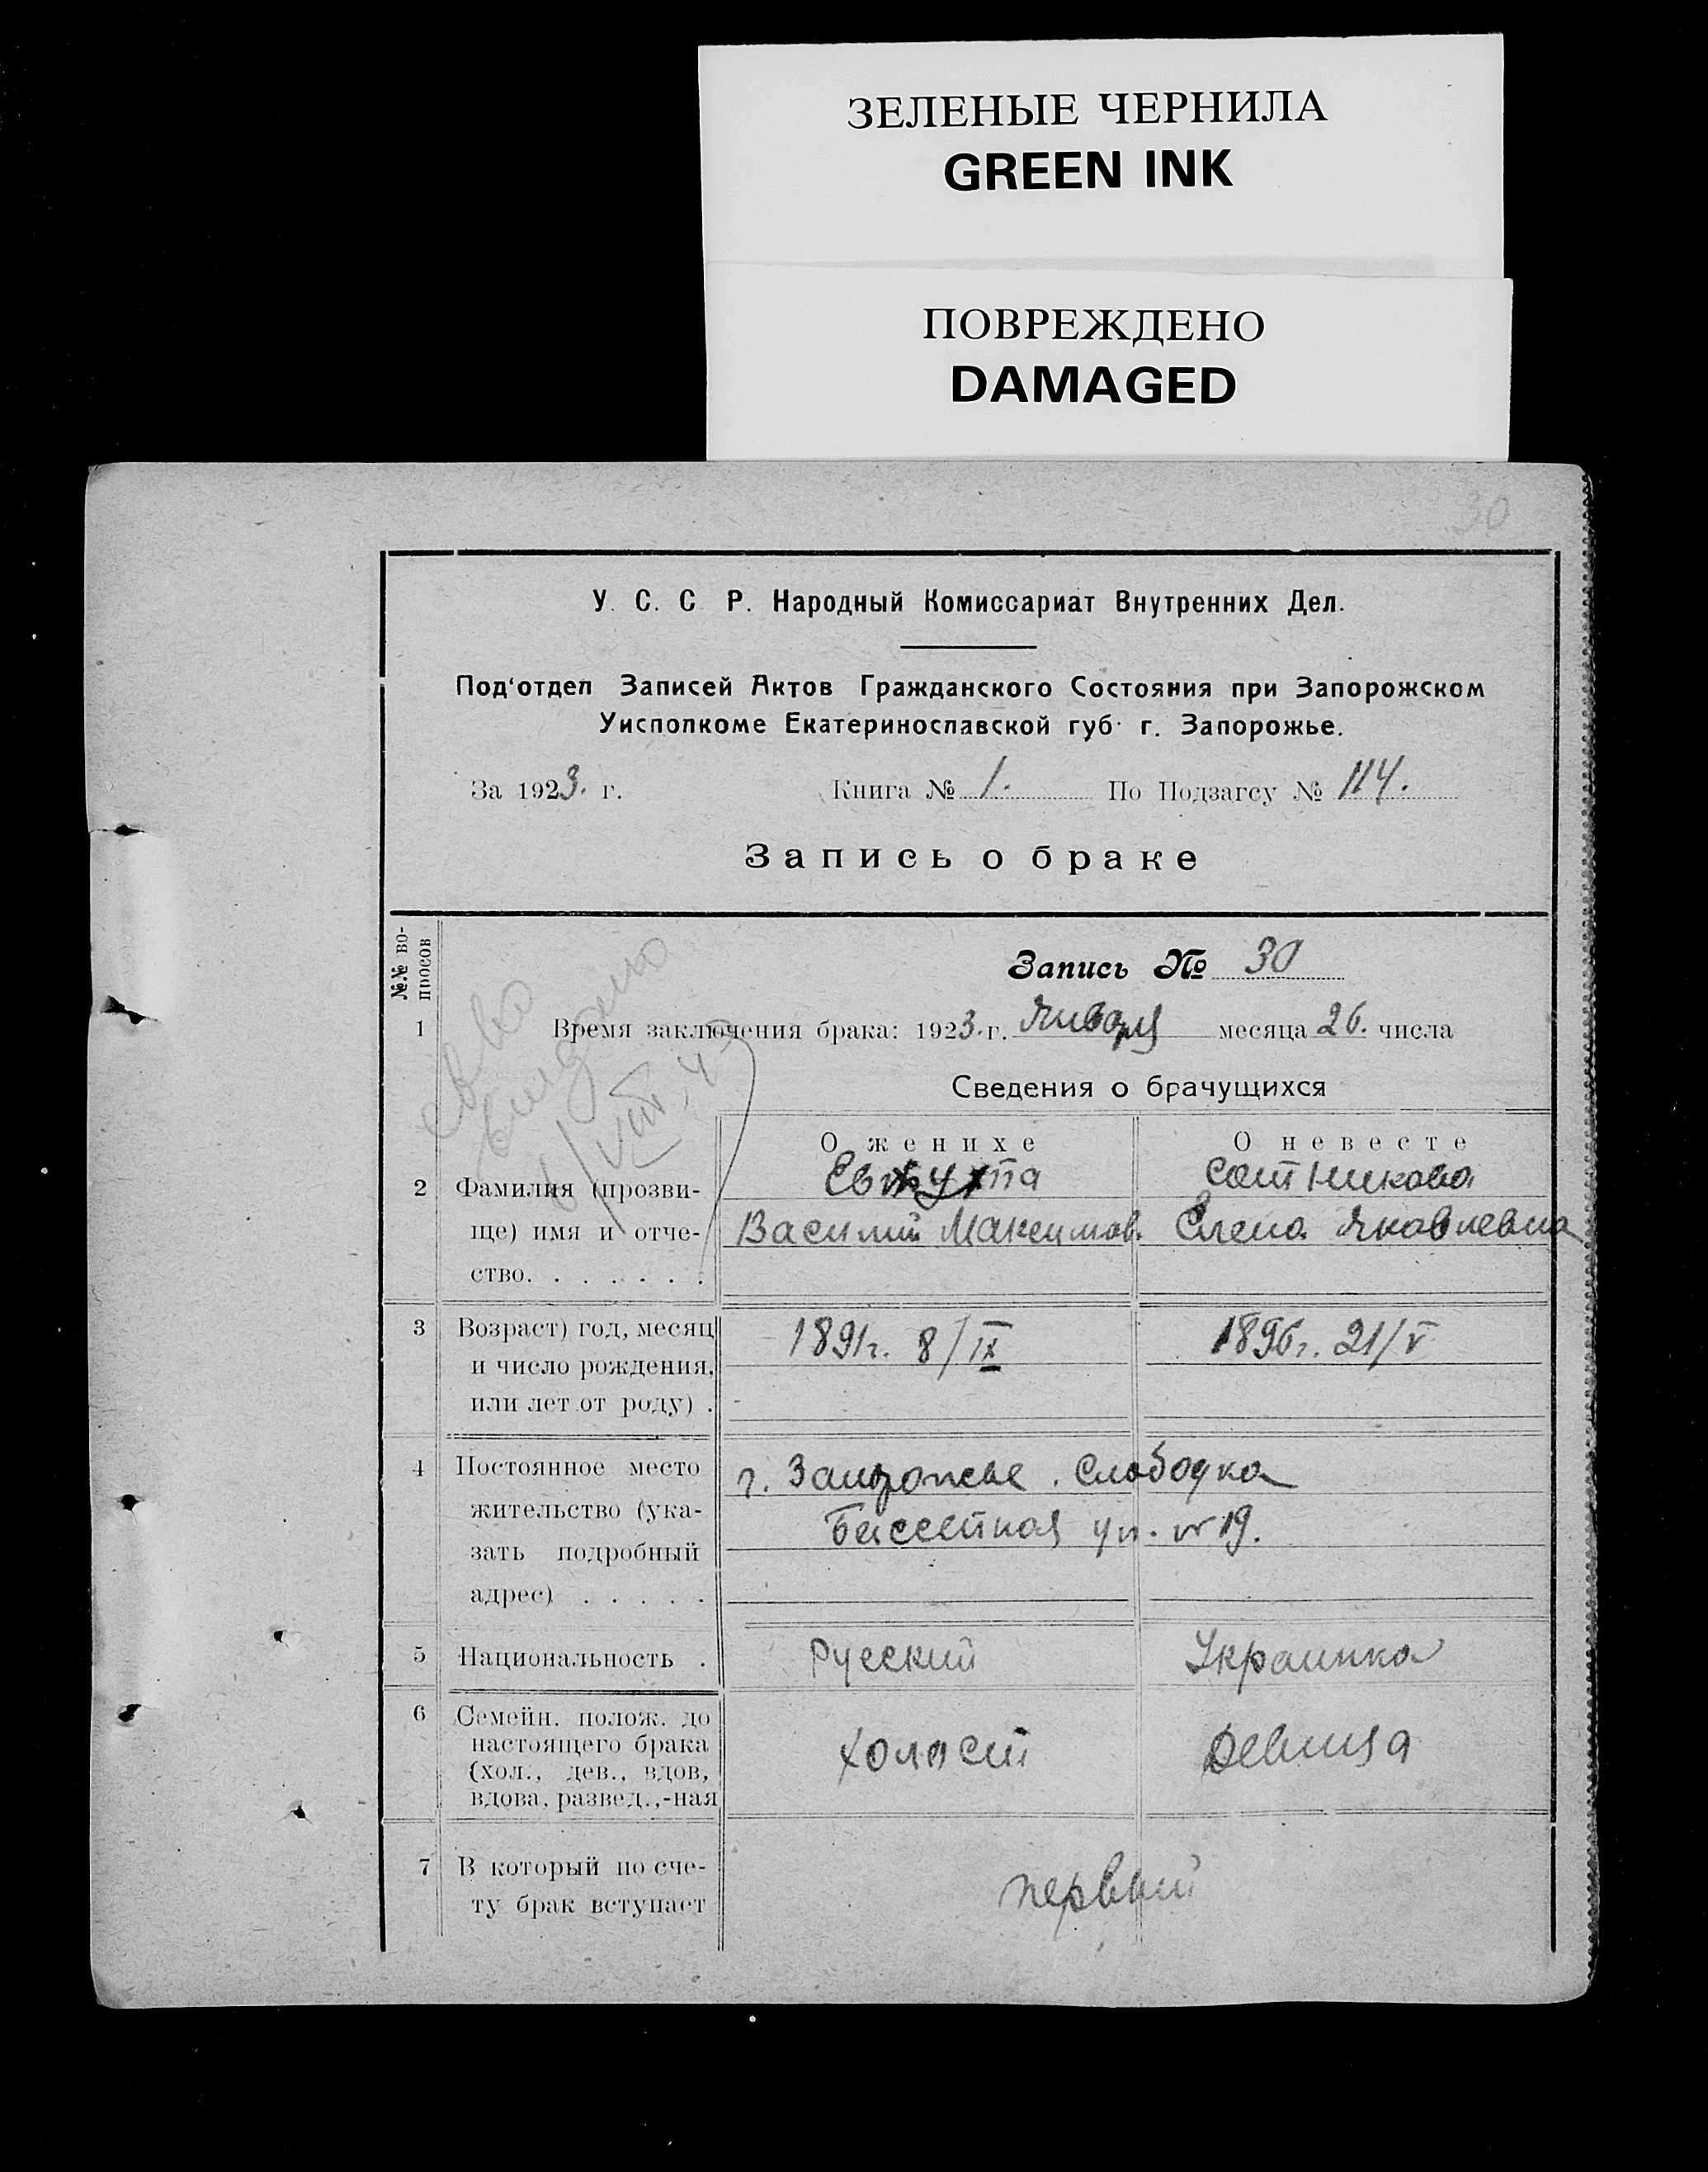 ЗЕЛЕНЫЕ ЧЕРНИЛА
GREEN INK
ПОВРЕЖДЕНО
DAMAGED
30
У. С. С. Р. Народный Комиссариат Внутренних Дел.
Под'отдел Записей Актов Гражданского Состояния при Запорожском
Уисполкоме Екатеринославской губ. г. Запорожье.
За 1923. г. Книга № 1. По Подзагсу № 114.
Запись о браке
№.№ во-
просов
Запись № 30
1 Время заключения брака: 1923. г. Января месяца 26. числа
Сведения о брачущихся
О женихе О невесте
2 Фамилия (прозви- Сотникова
ще) имя и отче- Василий Максимов. Елена Яковлевна
ство. . . . . . .
3 Возраст) год, месяц 1891г. 8/IX 1896г. 21/V
и число рождения,
или лет от роду) .
4 Постоянное место г. Запорожье. Слободка
жительство (ука- ул. № 19.
зать подробный
адрес) . . . . .
5 Национальность . Русский Украинка
6 Семейн. полож. до
настоящего брака холост девица
(хол., дев., вдов,
вдова, развед.,-ная
7 В который по сче- первый
ту брак вступает
выдано